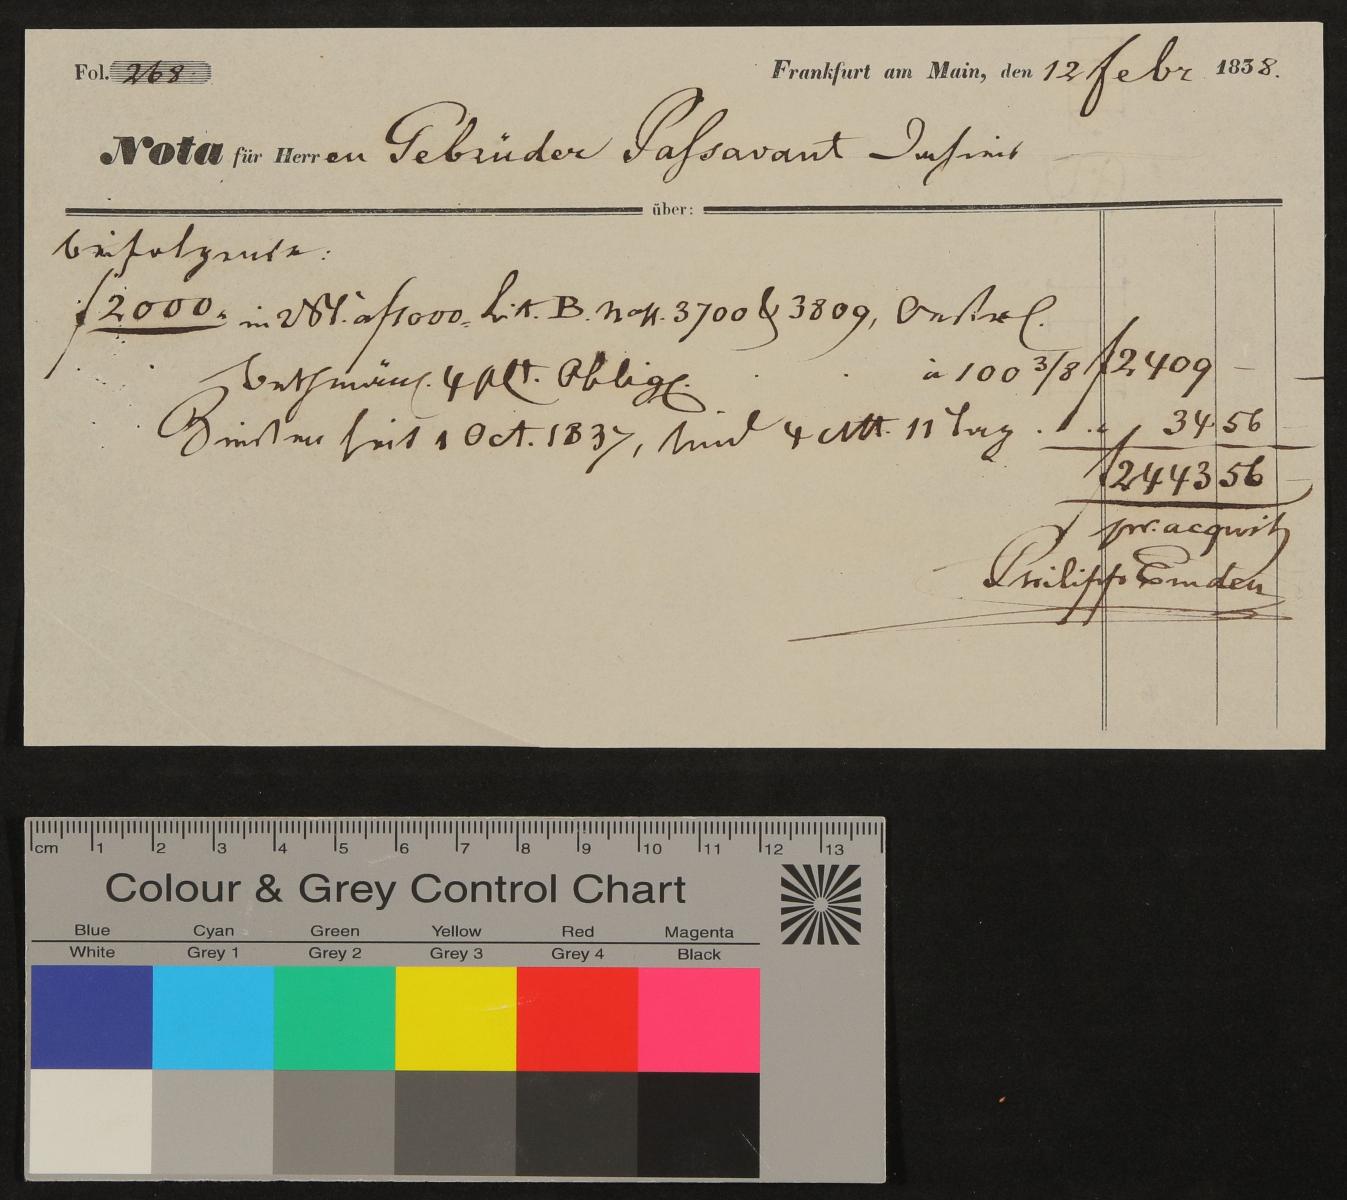 Fol. 268
Frankfurt am Main, den 12 febr 1838.
Nota für Herren Gebrüder Passavant
über:
beifolgende:
f 2000. in 2 St. a f 1000. Litt. B. Nos. 3700 & 3809, Oestrei.
Bethmän. 4 pCt. Oblig. à 100 3/8 f 2409 —
Zinsen seit 1 Oct. 1837, sind 4 Mt. 11 Tag . . . 34 56
f 2443 56
pr. acquit
Philipp Emden
cm 1 2 3 4 5 6 7 8 9 10 11 12 13
Colour & Grey Control Chart
Blue Cyan Green Yellow Red Magenta
White Grey 1 Grey 2 Grey 3 Grey 4 Black